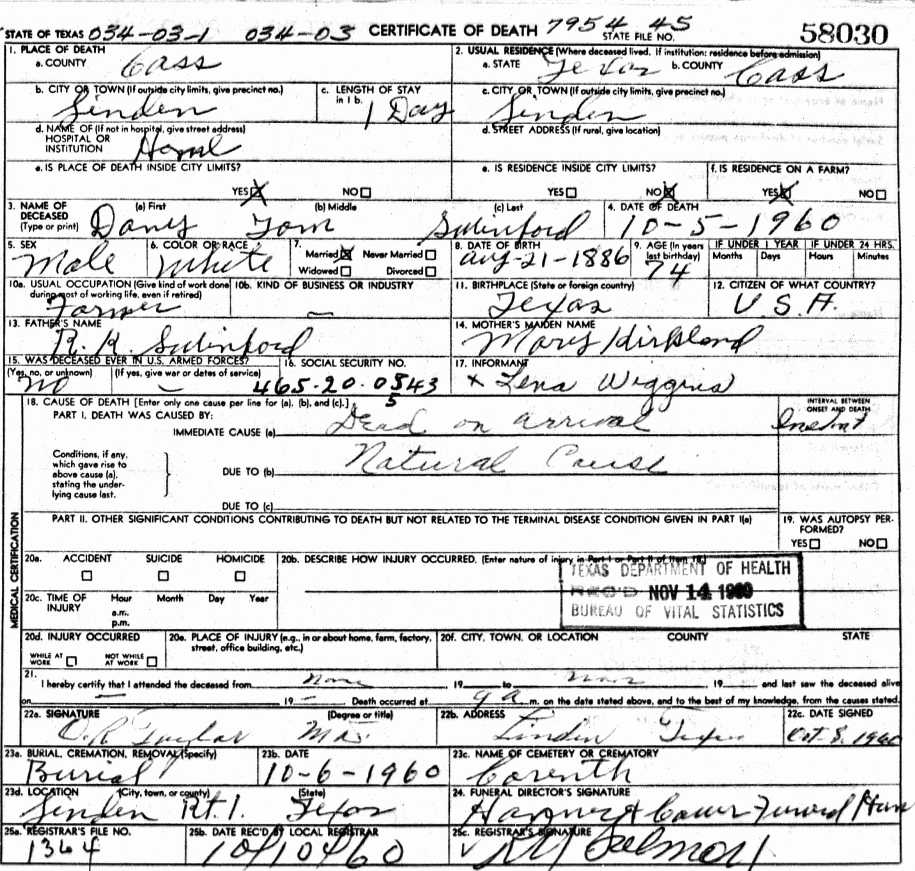 STATE OF TEXAS 034-03-1 034-03 CERTIFICATE OF DEATH 7954 45 STATE FILE NO. 58030
1. PLACE OF DEATH
a. COUNTY Cass
2. USUAL RESIDENCE (Where deceased lived. If institution: residence before admission)
a. STATE Texas b. COUNTY Cass
b. CITY OR TOWN (If outside city limits, give precinct no.) Linden
c. LENGTH OF STAY in 1 b. 1 Day
c. CITY OR TOWN (If outside city limits, give precinct no.) Linden
d. NAME OF (If not in hospital, give street address) HOSPITAL OR INSTITUTION
d. STREET ADDRESS (If rural, give location)
e. IS PLACE OF DEATH INSIDE CITY LIMITS?
YES X NO
e. IS RESIDENCE INSIDE CITY LIMITS?
YES NO X
f. IS RESIDENCE ON A FARM?
YES X NO
3. NAME OF DECEASED (Type or print)
(a) First (b) Middle (c) Last
Tom Swinford
4. DATE OF DEATH
10-5-1960
5. SEX Male
6. COLOR OR RACE White
7. Married X Never Married
Widowed Divorced
8. DATE OF BIRTH Aug-21-1886
9. AGE (In years last birthday) 74
IF UNDER 1 YEAR Months Days
IF UNDER 24 HRS. Hours Minutes
10a. USUAL OCCUPATION (Give kind of work done during most of working life, even if retired) Farmer
10b. KIND OF BUSINESS OR INDUSTRY –
11. BIRTHPLACE (State or foreign country) Texas
12. CITIZEN OF WHAT COUNTRY? U.S.A.
13. FATHER'S NAME R. K. Swinford
14. MOTHER'S MAIDEN NAME Mary Kirkland
15. WAS DECEASED EVER IN U.S. ARMED FORCES?
(Yes, no, or unknown) No (If yes, give war or dates of service) –
16. SOCIAL SECURITY NO. 465-20-0543
5
17. INFORMANT x Lena Wiggins
18. CAUSE OF DEATH [Enter only one cause per line for (a), (b), and (c).]
INTERVAL BETWEEN ONSET AND DEATH
PART I. DEATH WAS CAUSED BY:
IMMEDIATE CAUSE (a) Dead on arrival Instant
Conditions, if any, which gave rise to above cause (a), stating the underlying cause last.
DUE TO (b) Natural Cause
DUE TO (c)
PART II. OTHER SIGNIFICANT CONDITIONS CONTRIBUTING TO DEATH BUT NOT RELATED TO THE TERMINAL DISEASE CONDITION GIVEN IN PART I(a)
19. WAS AUTOPSY PERFORMED?
YES NO
MEDICAL CERTIFICATION
20a. ACCIDENT SUICIDE HOMICIDE
20b. DESCRIBE HOW INJURY OCCURRED. (Enter nature of injury in Part I or Part II of item 18.)
TEXAS DEPARTMENT OF HEALTH
REC'D NOV 14 1960
BUREAU OF VITAL STATISTICS
20c. TIME OF INJURY Hour a.m. p.m. Month Day Year
20d. INJURY OCCURRED
WHILE AT WORK NOT WHILE AT WORK
20e. PLACE OF INJURY (e.g., in or about home, farm, factory, street, office building, etc.)
20f. CITY, TOWN, OR LOCATION COUNTY STATE
21. I hereby certify that I attended the deceased from None 19 to None 19 and last saw the deceased alive
on – 19 – Death occurred at 9 a m. on the date stated above, and to the best of my knowledge, from the causes stated.
22a. SIGNATURE (Degree or title) Taylor
22b. ADDRESS Linden Texas
22c. DATE SIGNED Oct. 8, 1960
23a. BURIAL, CREMATION, REMOVAL (Specify) Burial
23b. DATE 10-6-1960
23c. NAME OF CEMETERY OR CREMATORY Corenth
23d. LOCATION (City, town, or county) (State) Linden Rt. 1. Texas
24. FUNERAL DIRECTOR'S SIGNATURE
25a. REGISTRAR'S FILE NO. 1364
25b. DATE REC'D BY LOCAL REGISTRAR 10/10/60
25c. REGISTRAR'S SIGNATURE